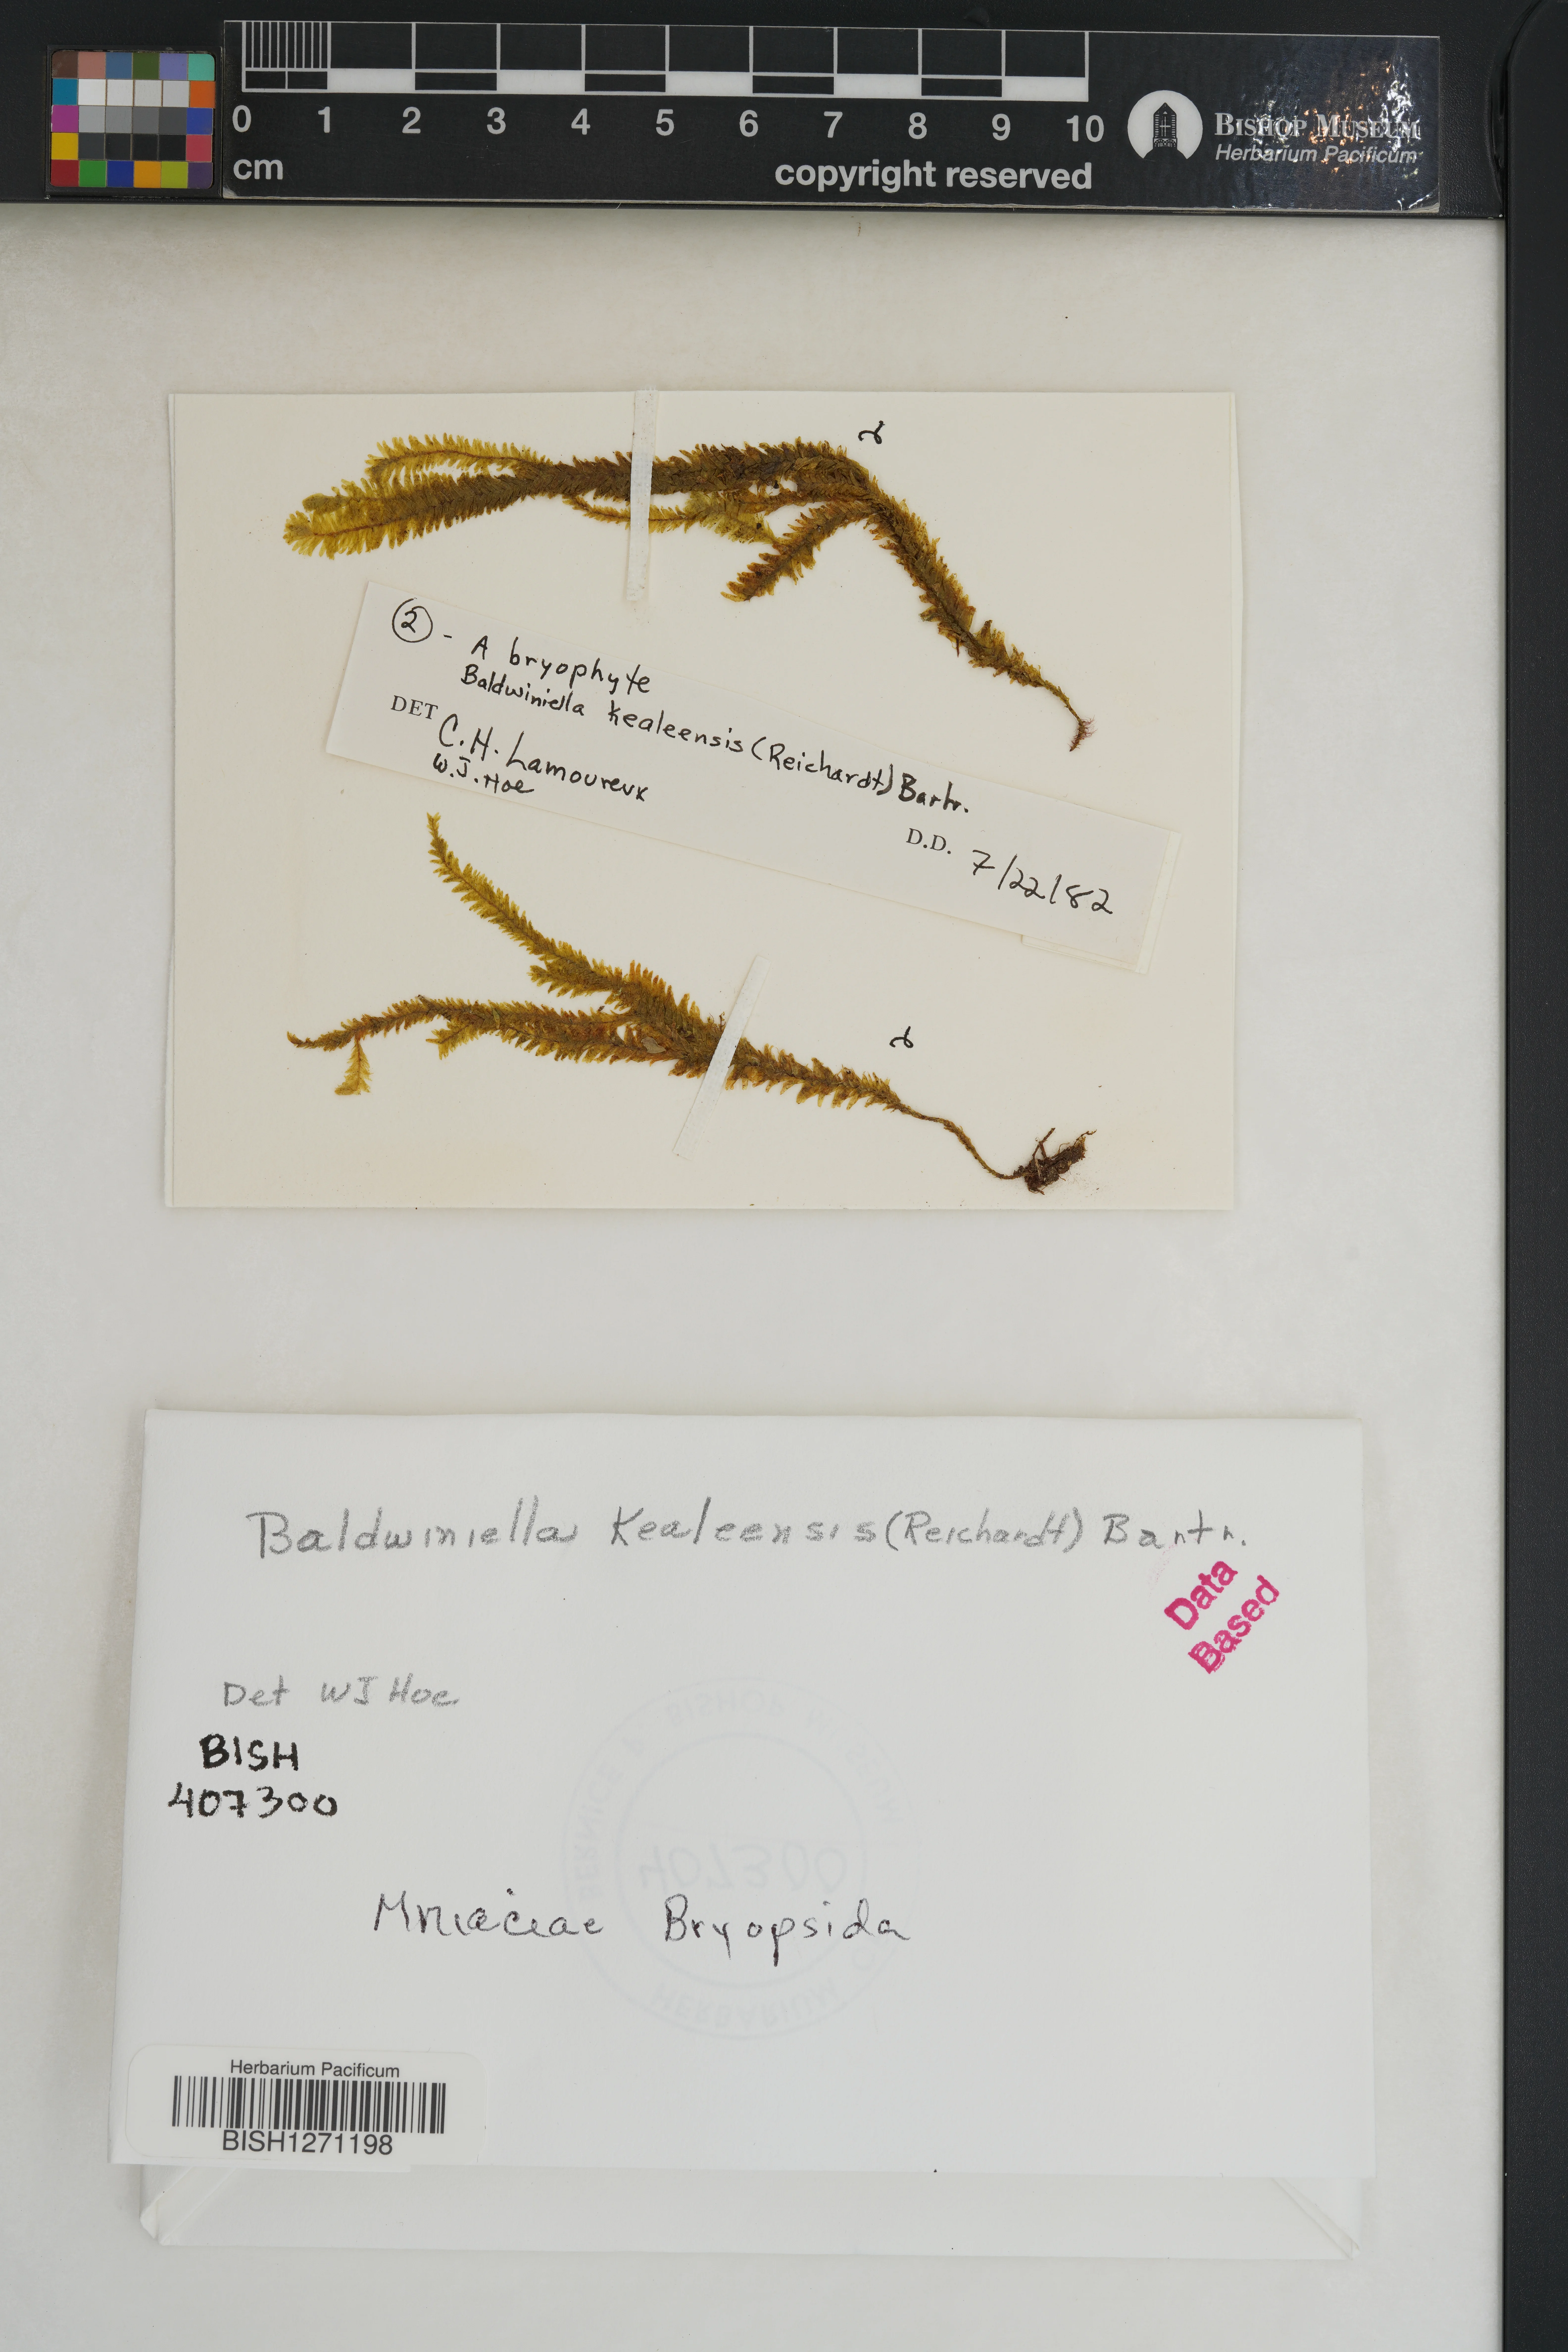 0 1 2 3 4 5 6 7 8 9 10
cm
copyright reserved
BISHOP MUSEUM
Herbarium Pacificum
② - A bryophyte
Baldwiniella kealeensis (Reichardt) Bartr.
DET C.H. Lamoureux
W.J. Hoe
D.D. 7/22/82
Baldwiniella kealeensis (Reichardt) Bartr.
Data
Based
Det WJ Hoe
BISH
407300
Mniaceae Bryopsida
Herbarium Pacificum
BISH1271198